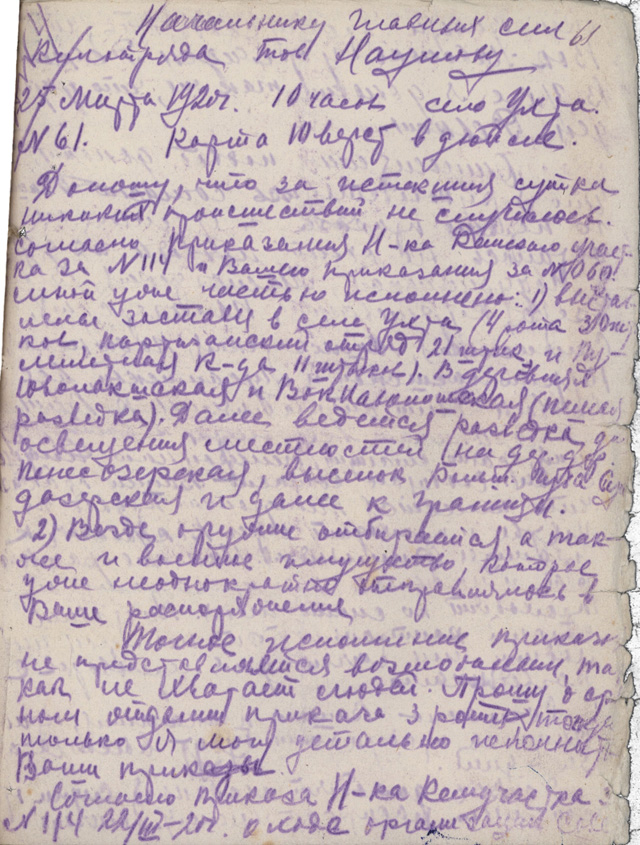 Начальнику главных сил 61
тов Наумову
25 Марта 1920г. 10 часов село Ухта.
№ 61. Карта 10 верст в дюйме.
Доношу, что за истекшия сутка
никаких происшествий не случилось.
Согласно приказания Н-ка
за № 114 и Вашего приказания за №
мной уже частью исполнено: 1) выстав
лены заставы в селе Ухта (4 рота 310
ков партизанский отряд 21 штык и Пу-
леметная к-да 11 штыков). В деревнях
и (пешая
разведка). Далее ведется разведка для
освещения местностей (на дер.
выселок
и далее к границы.
2) Везде орудие отбирается, а так-
же и военное имущество, которое
уже неоднократно отправлялось в
Ваше распоряжение
Точное исполнение приказа
не представляется возможным, та
как не хватает людей. Прошу о
отдании приказа 3 роте, тогда
только я могу детально исполнить
Ваши приказы
Согласно приказа Н-ка Кемучастка
№ 114 22/III-20г. о ходе организации